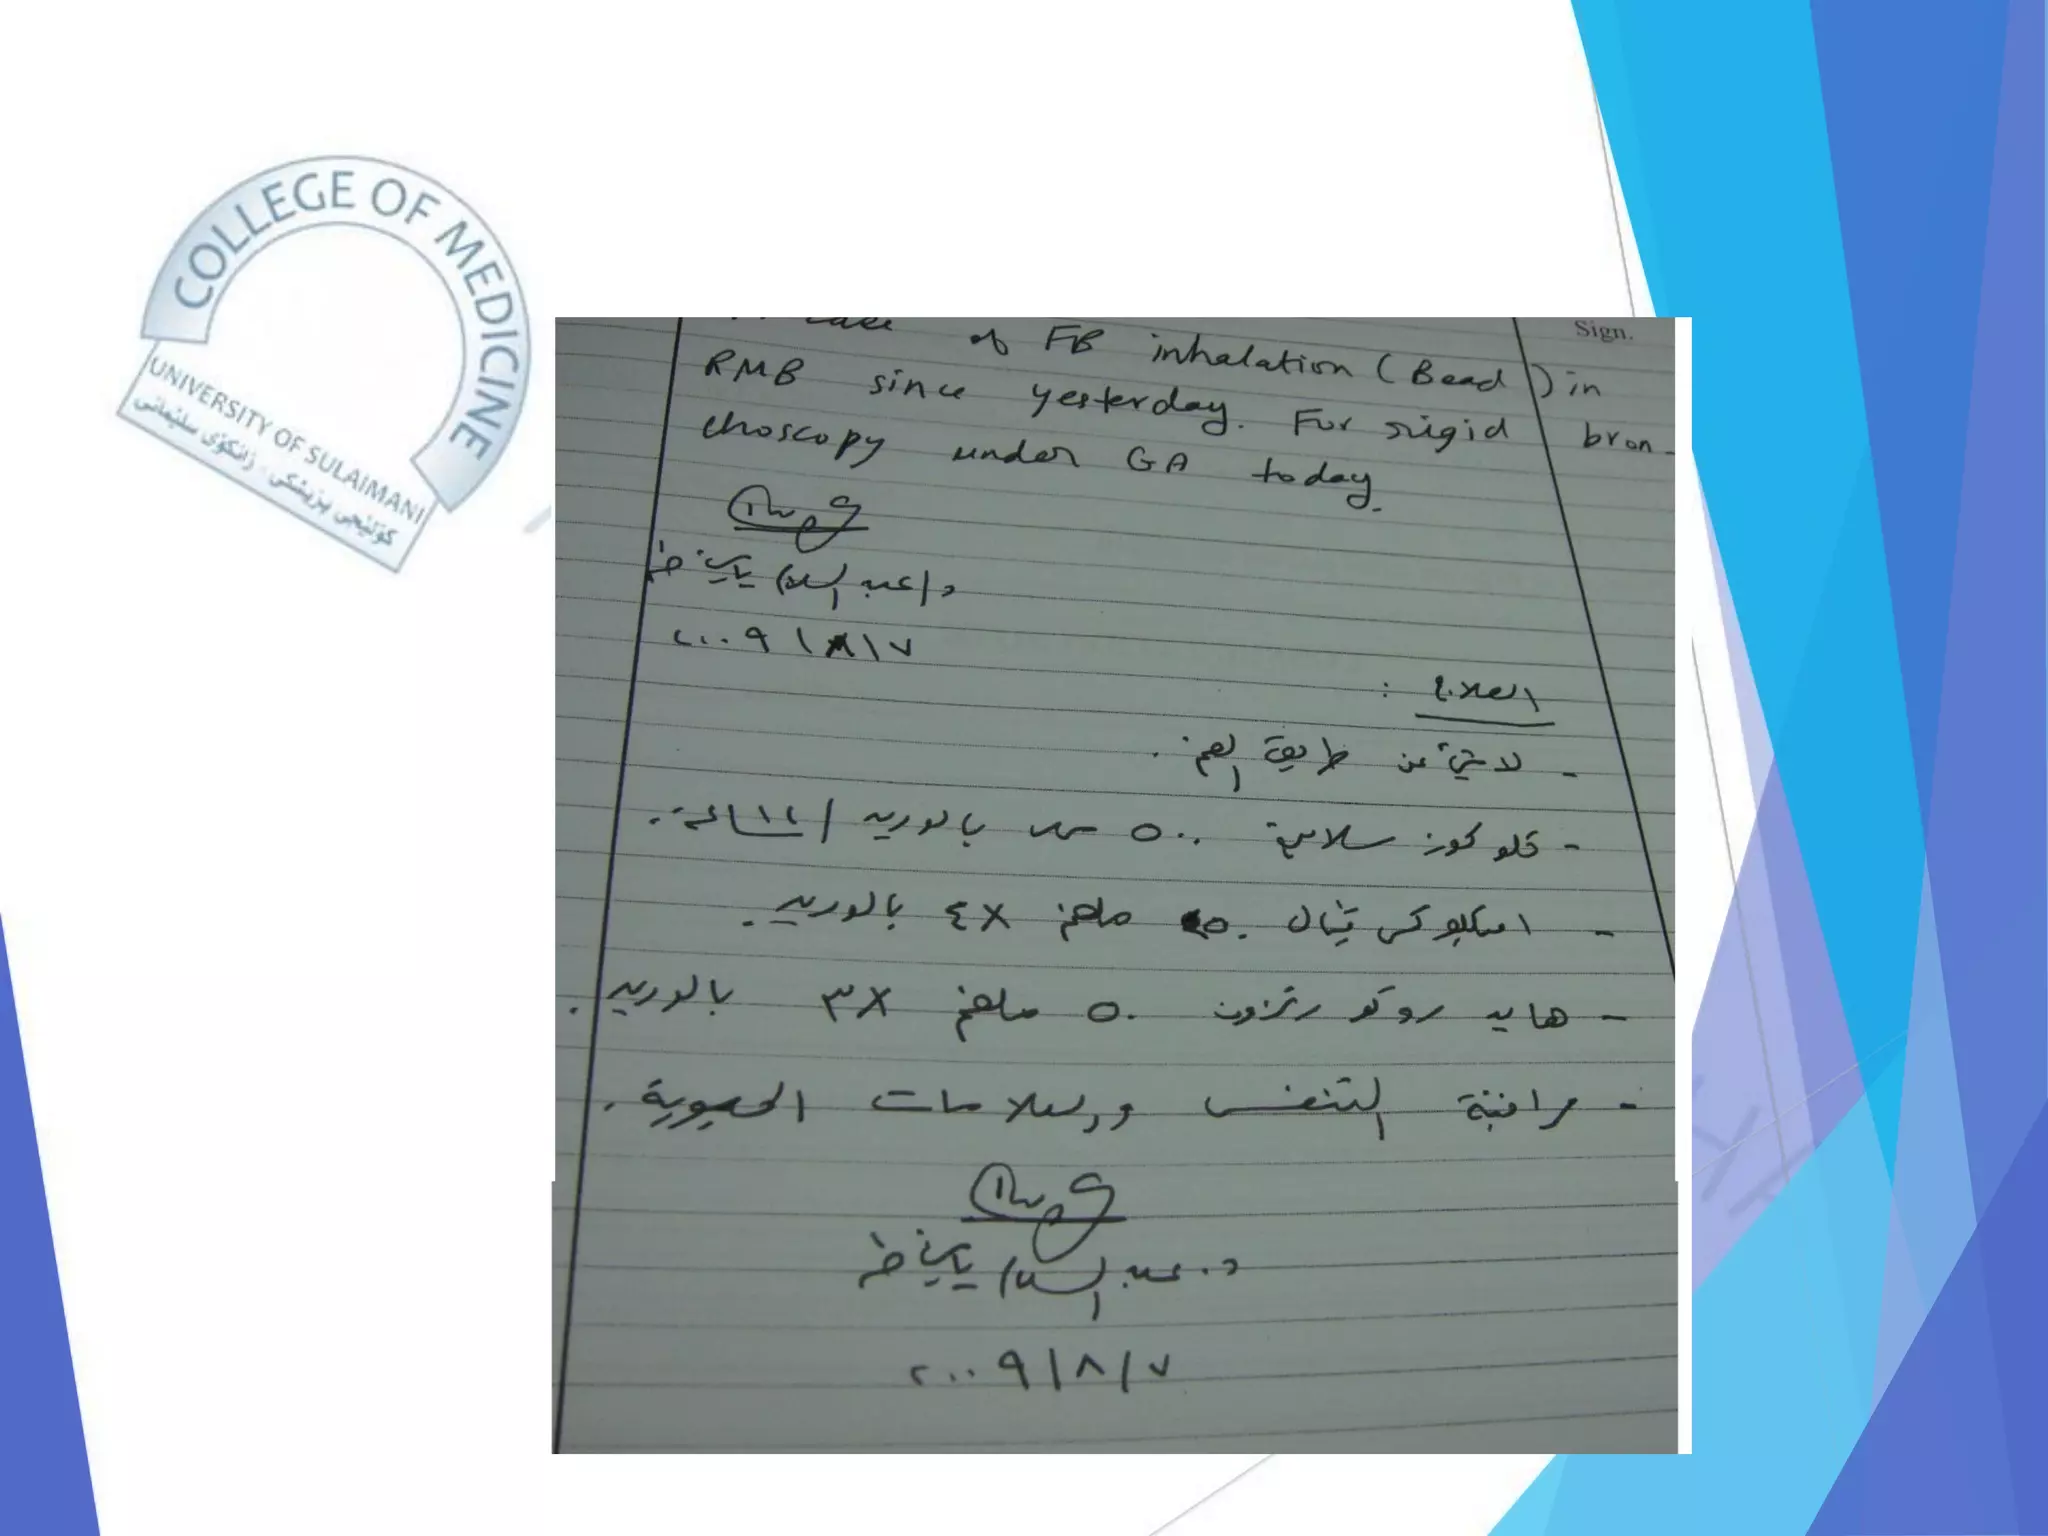 COLLEGE OF MEDICINE
UNIVERSITY OF SULAIMANI
كۆلێجی پزیشکی - زانکۆی سلێمانی
Sign.
case of FB inhalation (Bead) in
RMB since yesterday. For rigid bron-
choscopy under GA today.
د/عبد السلام ياسين طه
٢٠٠٩/٨/٧
العلاج :
- لا شيء عن طريق الفم.
- كلوكوز سلاين ٥٠٠ سي سي بالوريد / ١٢ ساعة.
- امبكلوكس فيال ٥٠٠ ملغم x ٤ بالوريد.
- هايدروكورتزون ٥٠ ملغم x ٣ بالوريد.
- مراقبة التنفس والعلامات الحيوية.
د. عبد السلام ياسين طه
٢٠٠٩/٨/٧